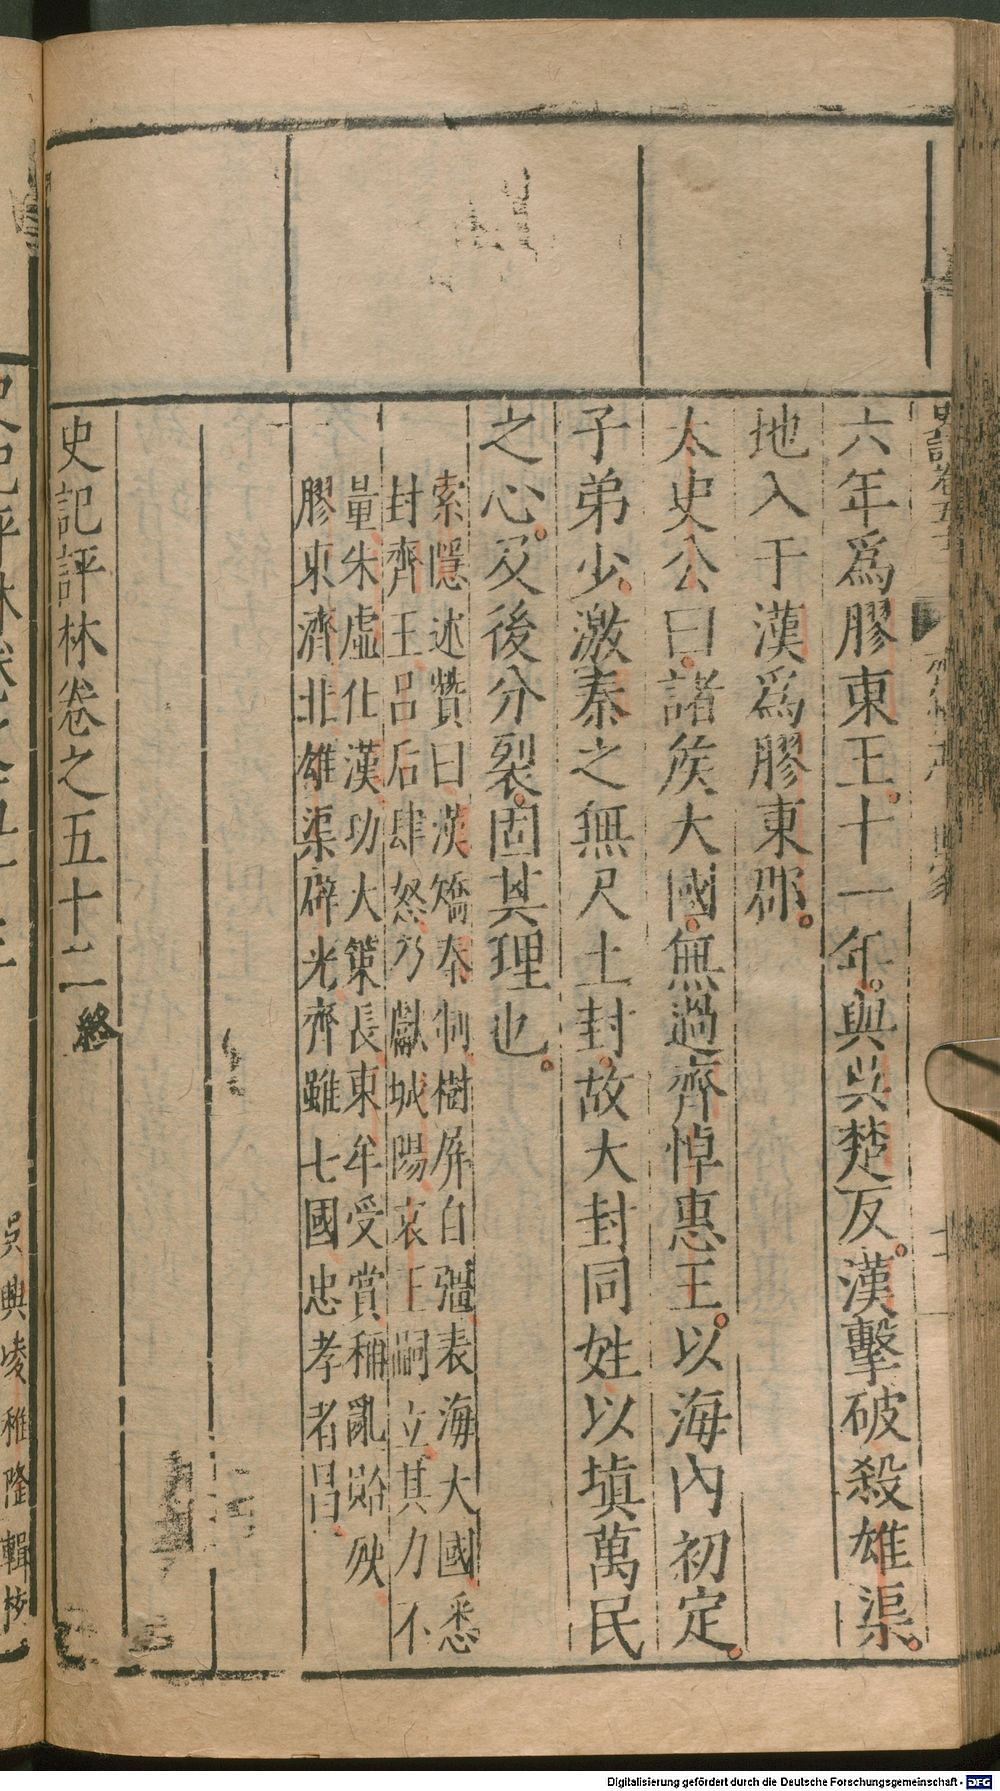 六年爲膠東王十一年與吳楚反漢擊破殺雄渠
地入于漢爲膠東郡
太史公曰諸矦大國無過齊悼惠王以海內初定
子弟少激秦之無尺土封故大封同姓以塡萬民
之心及後分裂固其理也
索隱述贊曰漢矯秦制樹屏自彊表海大國悉
封齊王呂后肆怒乃獻城陽哀王嗣立其力不
量朱虛仕漢功大策長東牟受賞稱亂貽殃
膠東濟北雄渠辟光齊雖七國忠孝者昌
史記評林卷之五十二終
吳興凌稚隆輯校
Digitalisierung gefördert durch die Deutsche Forschungsgemeinschaft - DFG